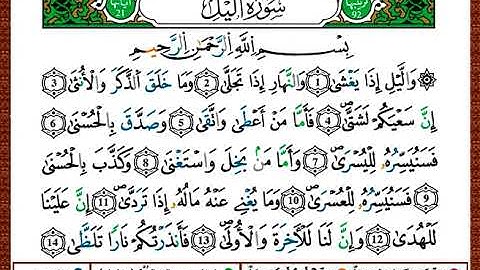 آياتها 21 سورة اليل ترتيبها 92
بِسْمِ اللَّهِ الرَّحْمَٰنِ الرَّحِيمِ
وَالَّيْلِ إِذَا يَغْشَىٰ 1 وَالنَّهَارِ إِذَا تَجَلَّىٰ 2 وَمَا خَلَقَ الذَّكَرَ وَالْأُنثَىٰ 3
إِنَّ سَعْيَكُمْ لَشَتَّىٰ 4 فَأَمَّا مَنْ أَعْطَىٰ وَاتَّقَىٰ 5 وَصَدَّقَ بِالْحُسْنَىٰ 6
فَسَنُيَسِّرُهُ لِلْيُسْرَىٰ 7 وَأَمَّا مَنۢ بَخِلَ وَاسْتَغْنَىٰ 8 وَكَذَّبَ بِالْحُسْنَىٰ
9 فَسَنُيَسِّرُهُ لِلْعُسْرَىٰ 10 وَمَا يُغْنِي عَنْهُ مَالُهُ إِذَا تَرَدَّىٰ 11 إِنَّ عَلَيْنَا
لَلْهُدَىٰ 12 وَإِنَّ لَنَا لَلْآخِرَةَ وَالْأُولَىٰ 13 فَأَنذَرْتُكُمْ نَارًا تَلَظَّىٰ 14